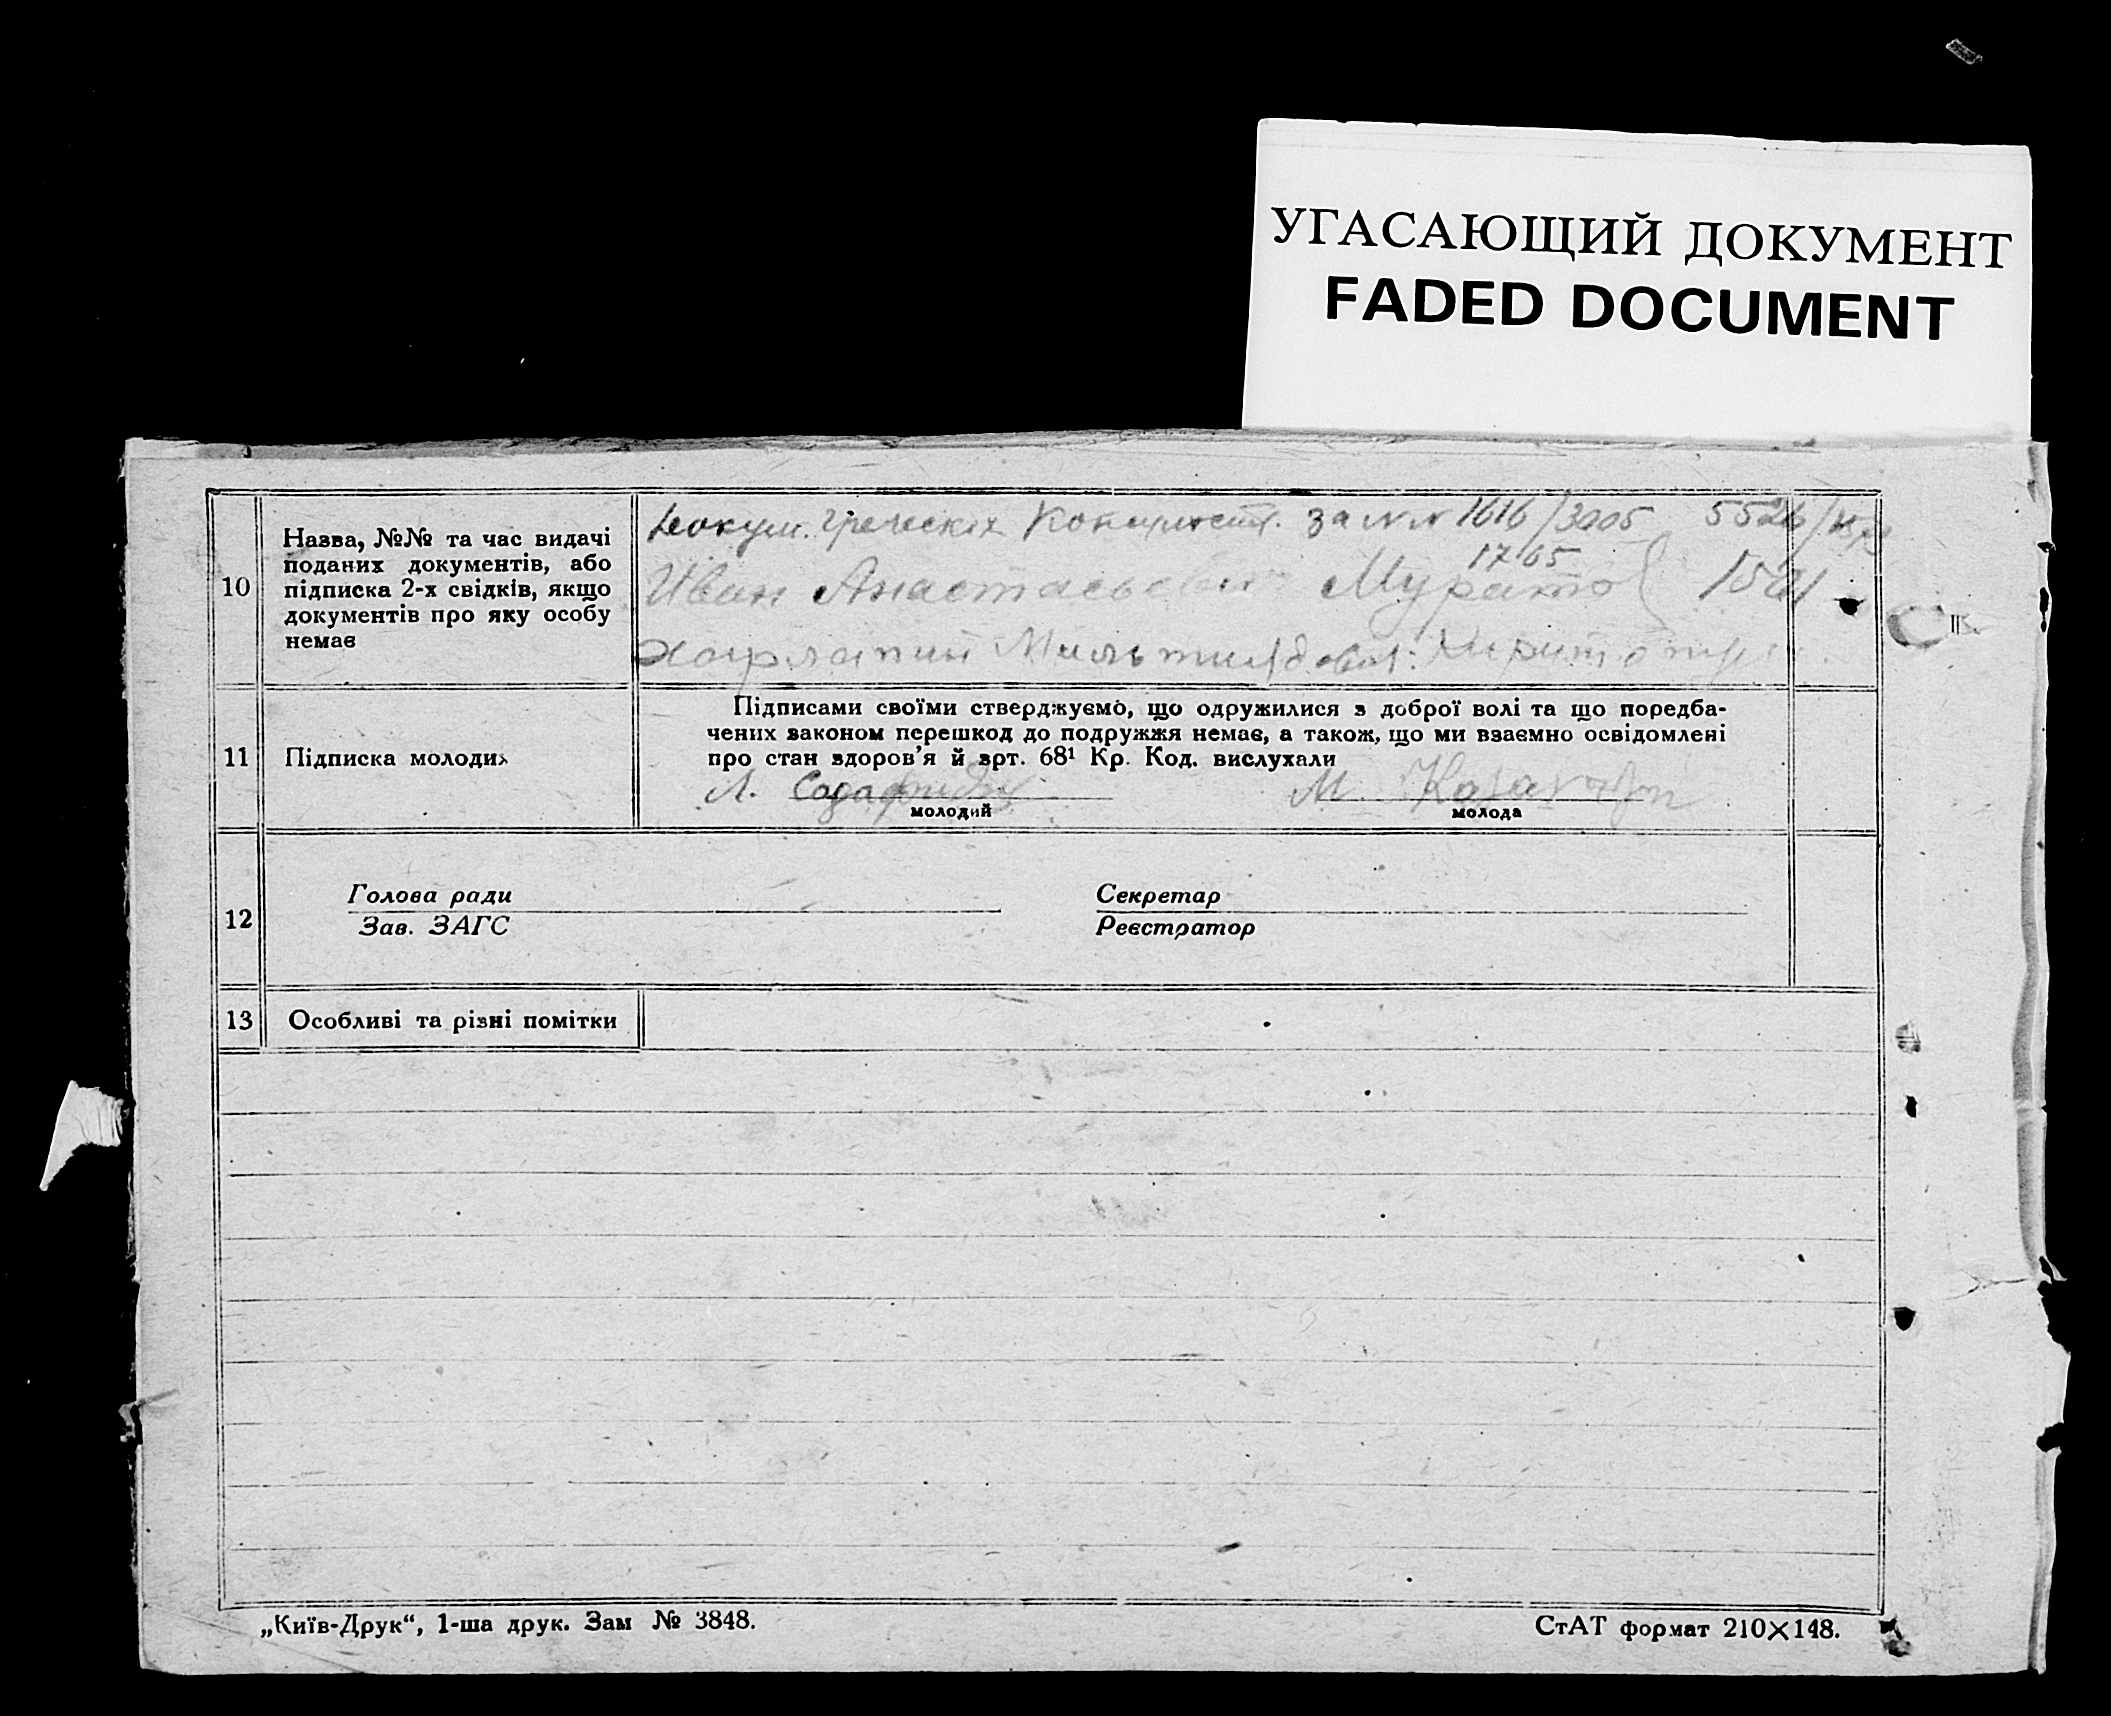 УГАСАЮЩИЙ ДОКУМЕНТ
FADED DOCUMENT
10
Назва, №№ та час видачі
поданих документів, або
підписка 2-х свідків, якщо
документів про яку особу
немає
Докум. греческих за NN 1616/3005 5526/
1765
Иван Мурато 1521
11
Підписка молодих
Підписами своїми стверджуємо, що одружилися з доброї волі та що поредба-
чених законом перешкод до подружжя немає, а також, що ми взаємно освідомлені
про стан здоров'я й арт. 68¹ Кр. Код. вислухали
Л.
М.
молодий
молода
12
Голова ради
Зав. ЗАГС
Секретар
Реєстратор
13
Особливі та різні помітки
„Київ-Друк“, 1-ша друк. Зам № 3848.
СтАТ формат 210×148.